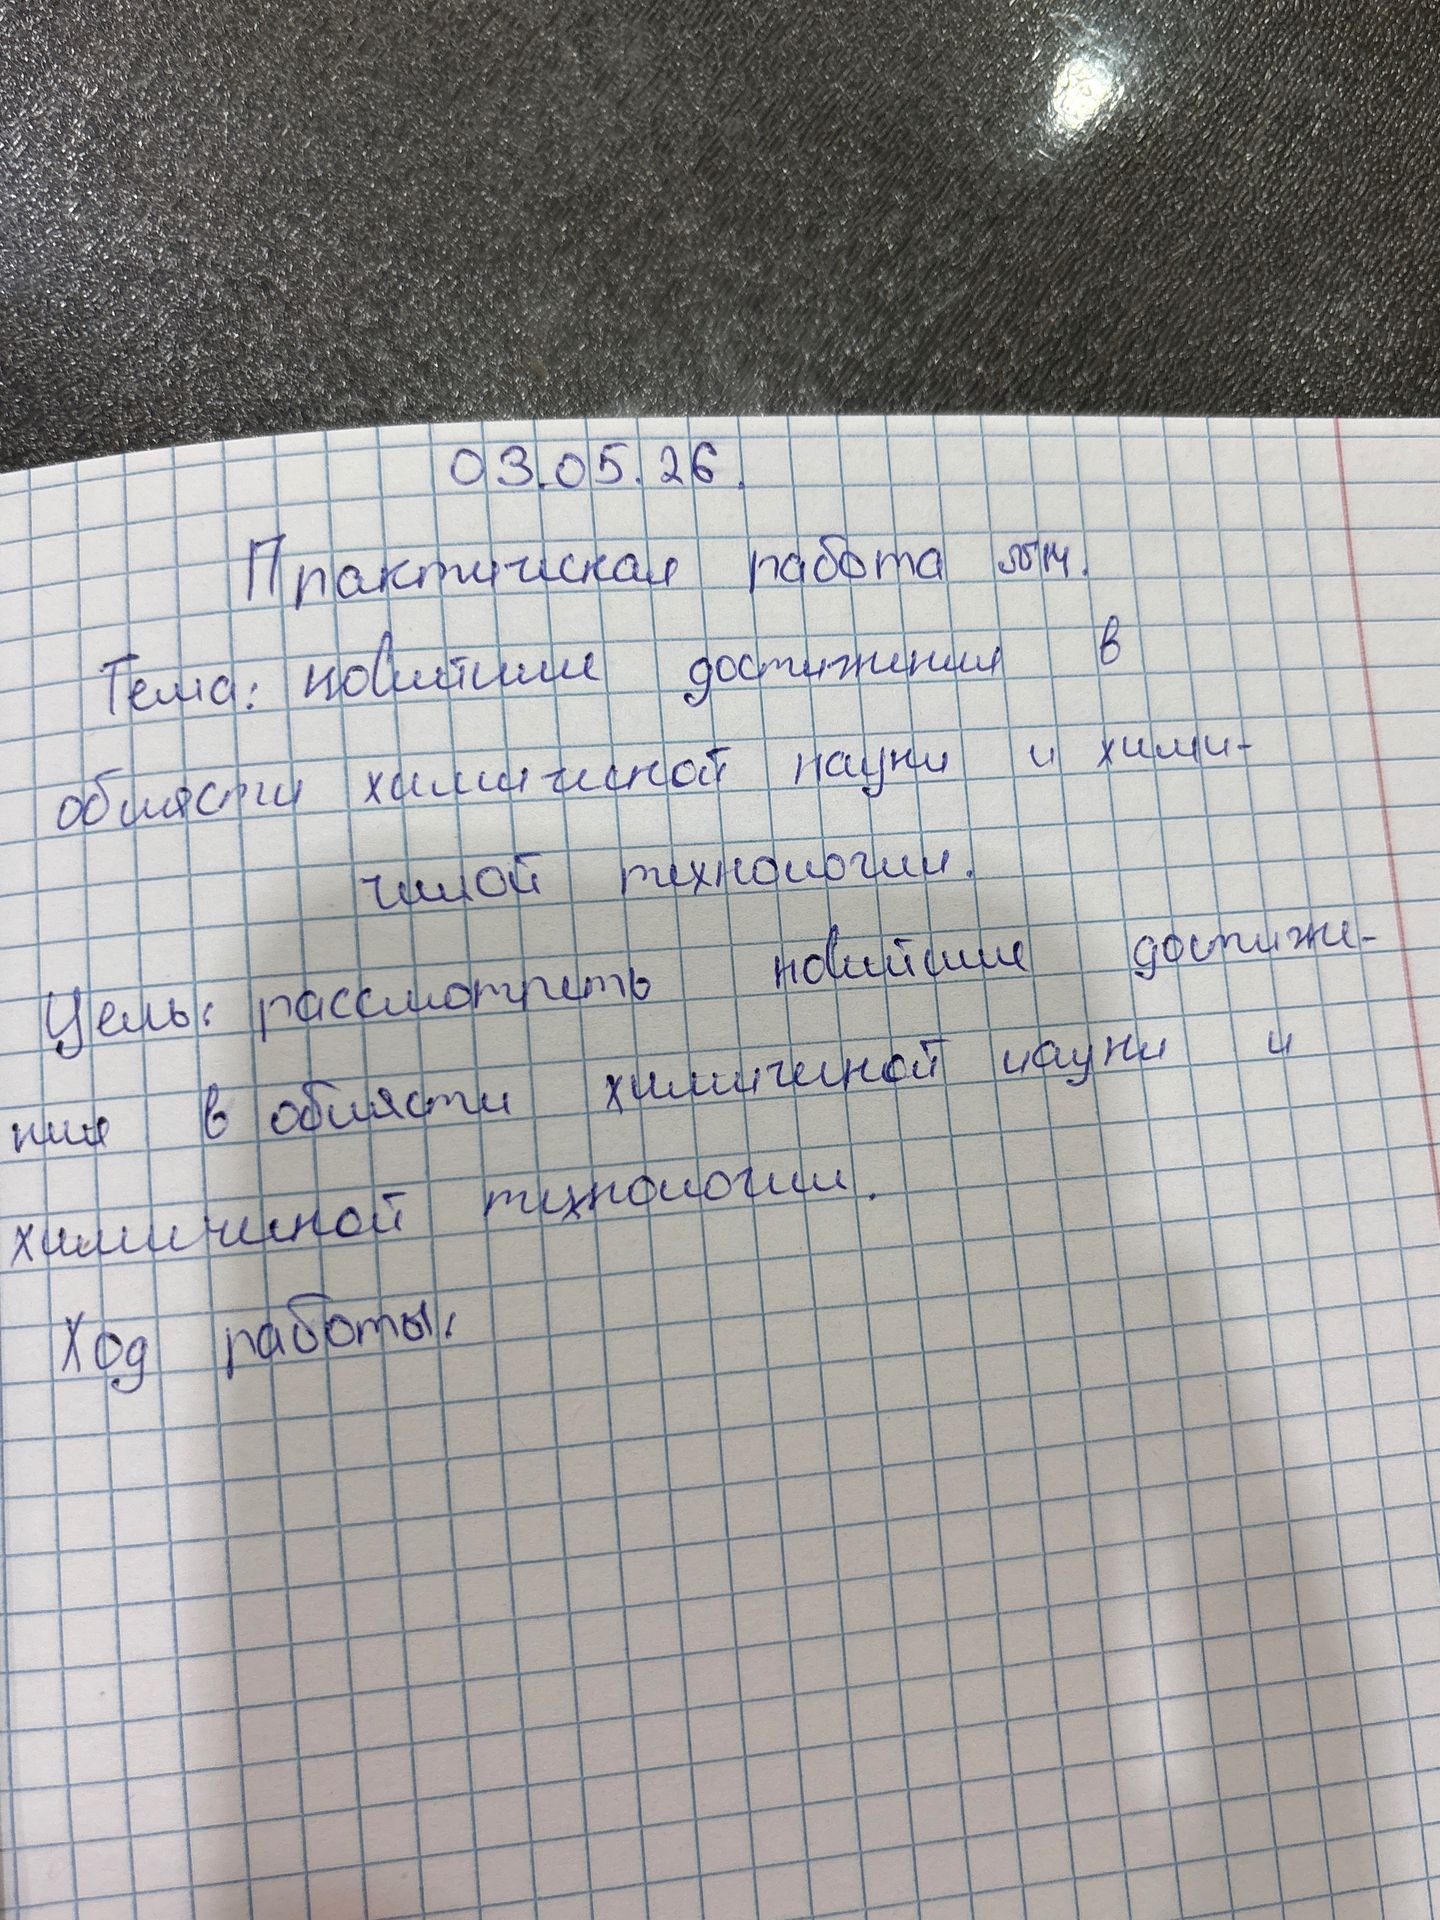 03.05.26.
Практическая работа №14.
Тема: новейшие достижения в
области химической науки и хими-
чилой технологии.
Цель: рассмотреть новейшие достиже-
ния в области химической науки и
химической технологии.
Ход работы: